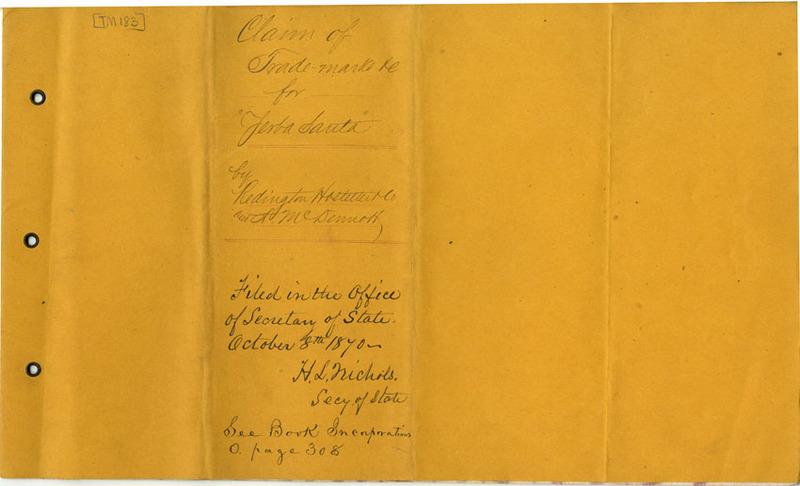 TM 183
Claim of
Trade-mark &c
for
"Yerba Santa"
by
Redington Hostetter & Co
McDermott
Filed in the Office
of Secretary of State.
October 8th 1870
H. L. Nichols.
Secy of State
See Book Incorporations
O. page 308